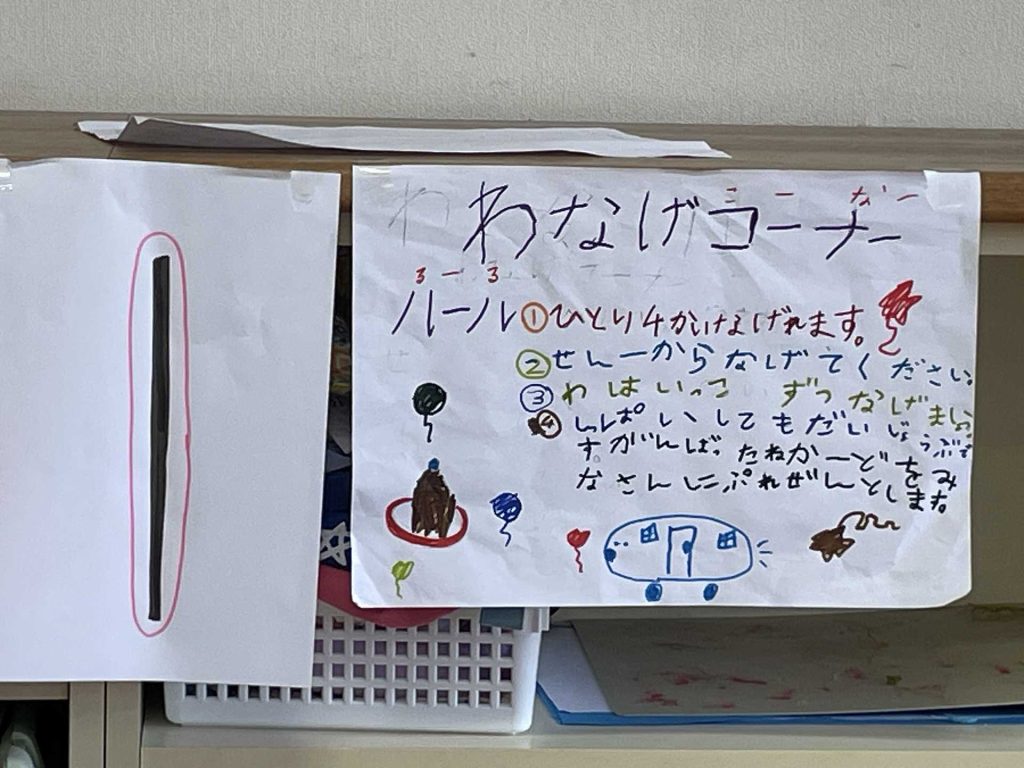 こー なー
わなげコーナー
るーる
ルール ①ひとり4かいなげれます。
②せんーからなげてください。
③わはいっこ ずつなげましょう
④しっぱいしてもだいじょうぶで
す。がんばったねかーどをみ
なさんにぷれぜんとします。